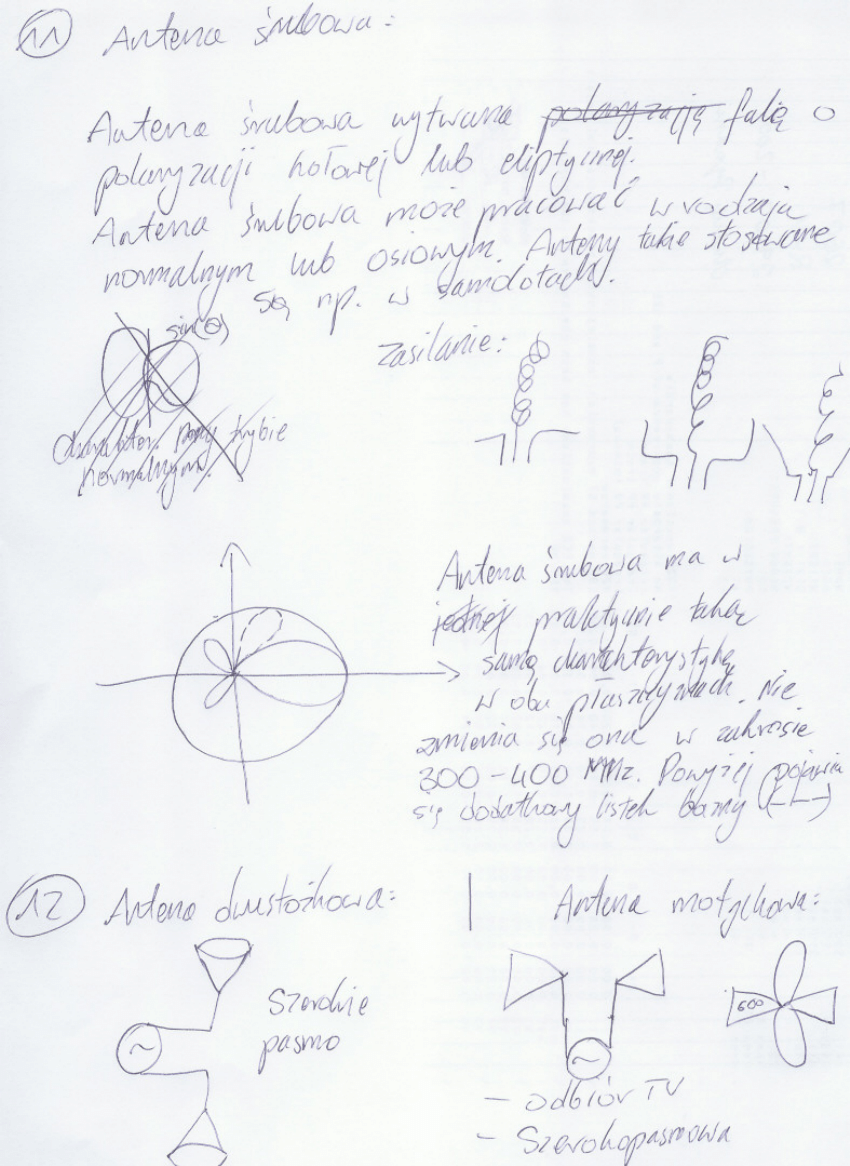 11 Antena śrubowa:
Antena śrubowa wytwarza polaryzację falę o
polaryzacji kołowej lub eliptycznej.
Antena śrubowa może pracować w rodzaju
normalnym lub osiowym. Anteny takie stosowane
są np. w samolotach.
sin(θ)
zasilanie:
charakter. przy trybie
normalnym.
Antena śrubowa ma w
jednej praktycznie taką
samą charakterystykę
w obu płaszczyznach. Nie
zmienia się ona w zakresie
300-400 MHz. Powyżej pojawia
się dodatkowy listek boczny (---)
12 Antena dwustożkowa: | Antena motylkowa:
Szerokie
pasmo
600
- odbiór TV
- Szerokopasmowa